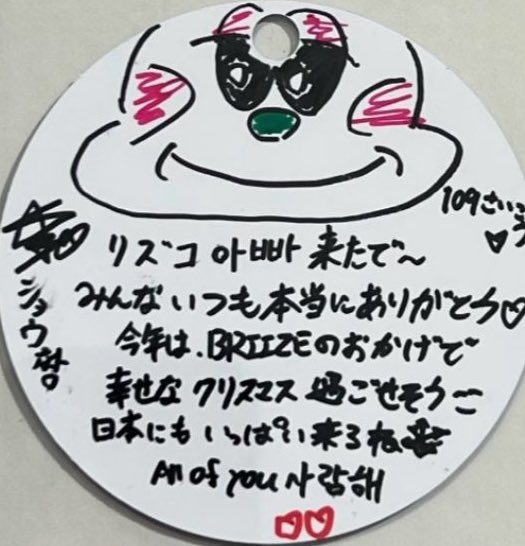 109さいこう♡
ショウ짱
リズコ 아빠 来たで〜
みんな いつも 本当に ありがとう♡
今年は.BRIIZEのおかげで
幸せな クリスマス 過ごせそう
日本にも いっぱい来るね
All of you 사랑해
♡♡